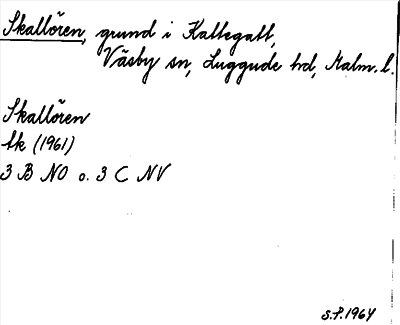 Skallören, grund i Kattegatt,
Väsby sn, Luggude hd, Malm. l.
Skallören
Ek (1961)
3 B NO o. 3 C NV
S.P. 1964